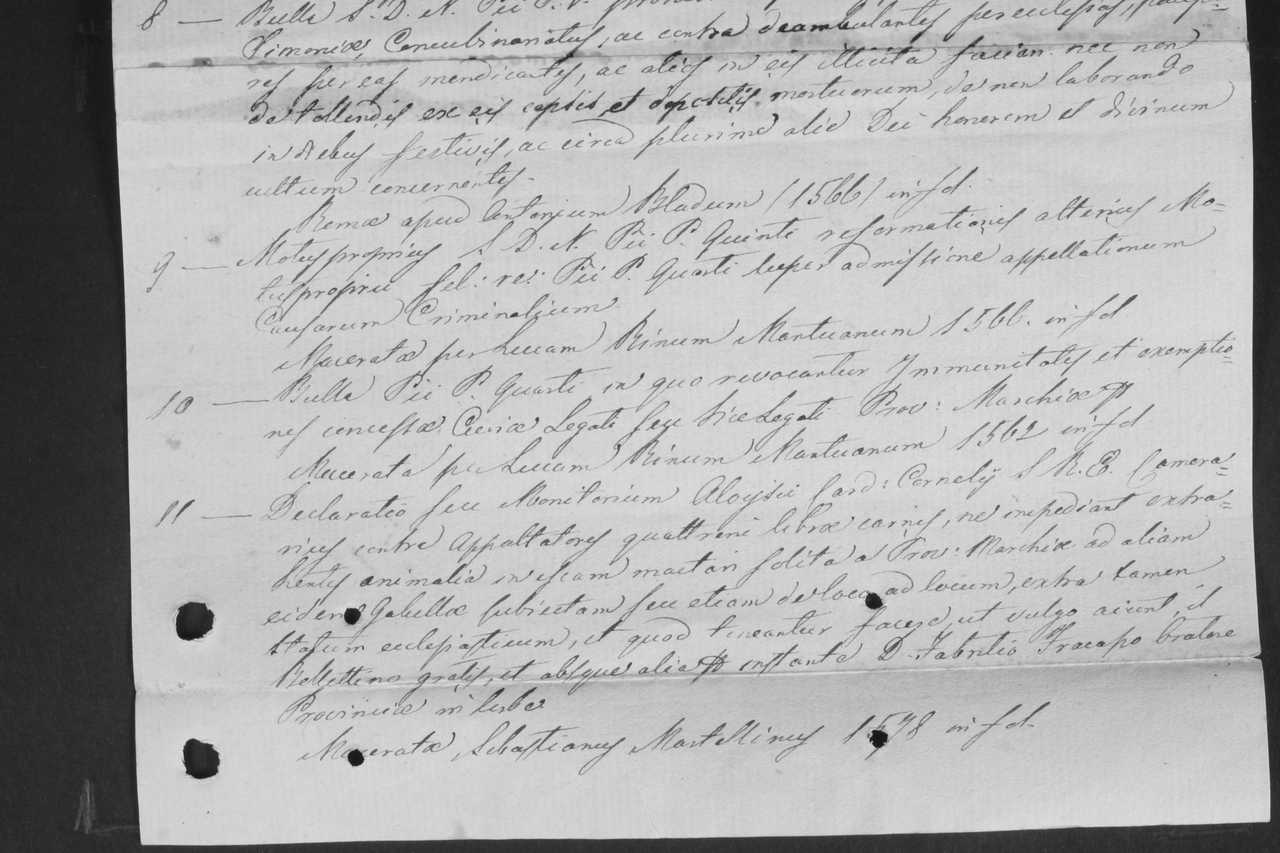 8 — Bulla S. D. N. Pii P. V.
Simoniæ, Concubinariatus, ac contra deambulantes per ecclesias,
res per eas mendicantes, ac alios in eis illicita facien. nec non
de tollendis ex eis capsis et depositis mortuorum, de non laborando
in diebus festivis, ac circa plurima alia Dei honorem et divinum
cultum concernentes.
Romæ apud Antonium Bladum (1566) in fol.
9 — Motusproprius S. D. N. Pii P. Quinti reformationis alterius Mo=
tusproprii fel: re: Pii P. Quarti super admissione appellationum
Causarum Criminalium.
Maceratæ per Lucam Binum Mantuanum 1566. in fol
10 — Bulla Pii P. Quarti in qua revocantur Immunitates et exemptio=
nes concessæ Legati seu Vice Legati Prov: Marchiæ
Macerata per Lucam Binum Mantuanum 1562 in fol
11 — Declaratio seu Monitorium Aloysii Card: Cornelij S. R. E. Camera=
rius contra Appaltatores quattreni libræ carnis, ne impediant extra=
hentes animalia in escam mactari solita a Prov: Marchiæ ad aliam
eidem Gabellæ subiectam seu etiam de loco ad locum, extra tamen
statum ecclesiasticum, et quod teneantur facere, ut vulgo aiunt, il
Bollettino gratis, et absque alia instante D. Fabritio Oratore
Provinciæ in Urbe
Maceratæ, Sebastianus Martellinus 1578 in fol.